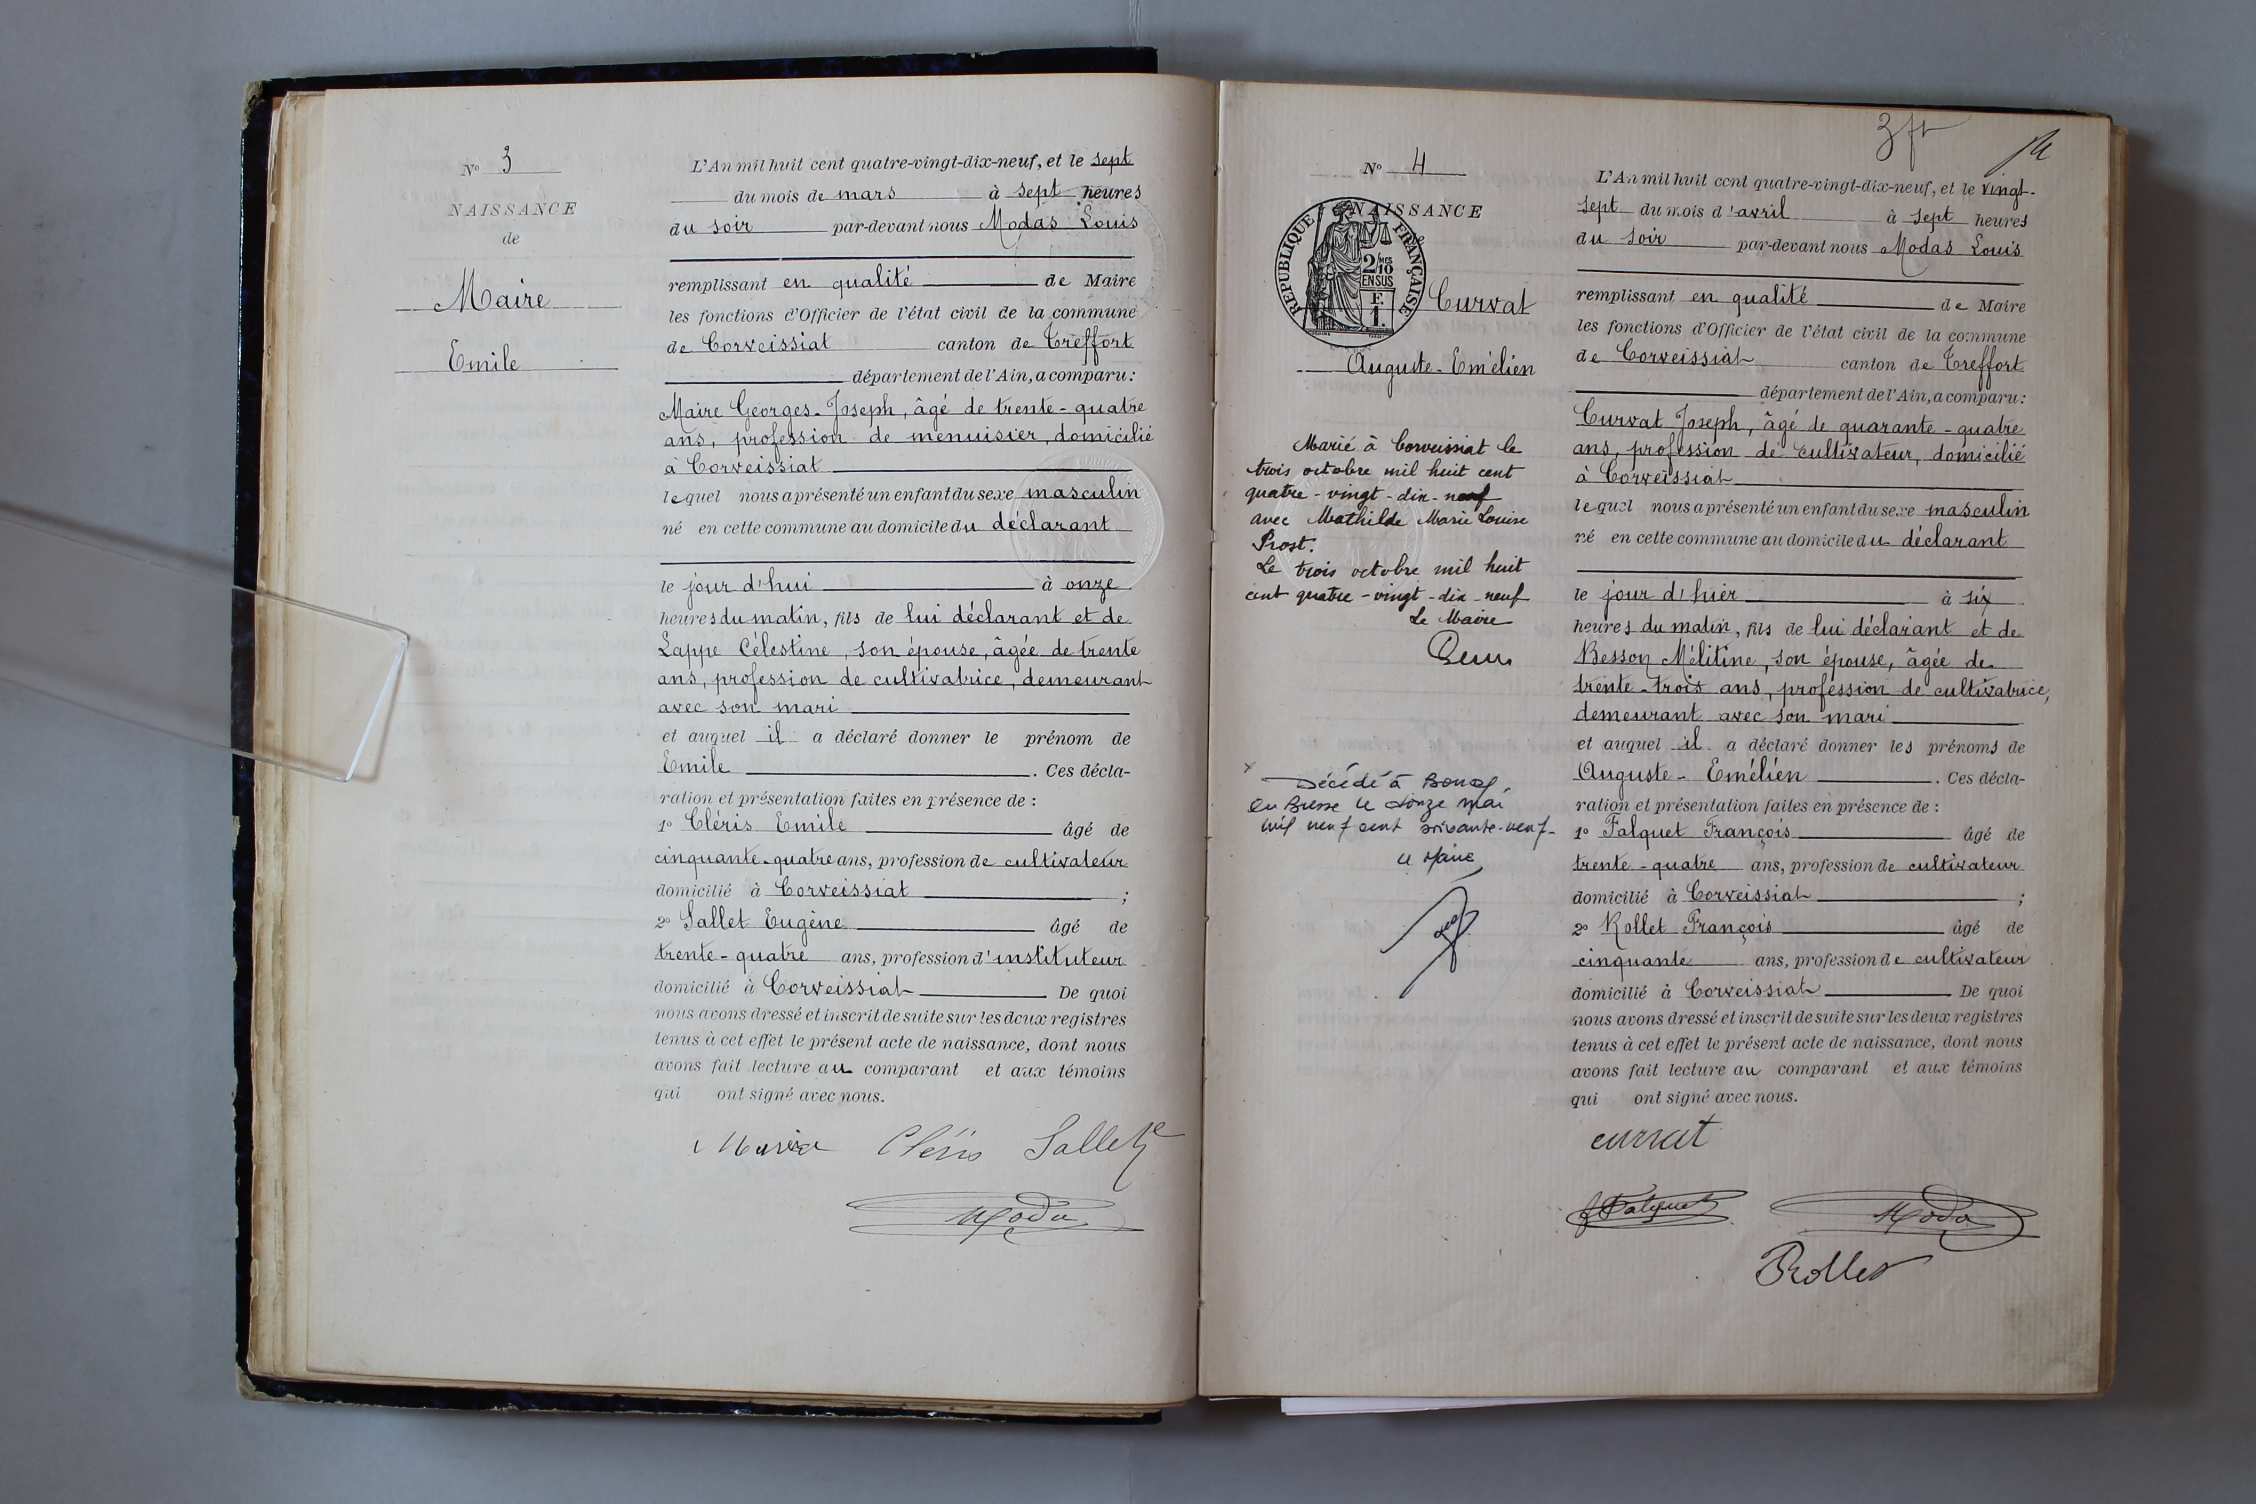 No 3
NAISSANCE
de
Maire
Emile
L'An mil huit cent quatre-vingt-dix-neuf, et le sept
du mois de mars à sept heures
du soir par-devant nous Modas Louis
remplissant en qualité de Maire
les fonctions d'Officier de l'état civil de la commune
de Corveissiat canton de Treffort
département de l'Ain, a comparu:
Maire Georges-Joseph, âgé de trente-quatre
ans, profession de menuisier, domicilié
à Corveissiat
lequel nous a présenté un enfant du sexe masculin
né en cette commune au domicile du déclarant
le jour d'hui à onze
heures du matin, fils de lui déclarant et de
Lappe Célestine, son épouse, âgée de trente
ans, profession de cultivatrice, demeurant
avec son mari
et auquel il a déclaré donner le prénom de
Emile. Ces décla-
ration et présentation faites en présence de :
1o Cléris Emile âgé de
cinquante-quatre ans, profession de cultivateur
domicilié à Corveissiat ;
2o Sallet Eugène âgé de
trente-quatre ans, profession d'instituteur
domicilié à Corveissiat De quoi
nous avons dressé et inscrit de suite sur les deux registres
tenus à cet effet le présent acte de naissance, dont nous
avons fait lecture au comparant et aux témoins
qui ont signé avec nous.
Maire Cléris Sallet E
Modas
3 fr
No 4
NAISSANCE
RÉPUBLIQUE FRANÇAISE
2/10
EN SUS
F.
1.
Curvat
Auguste-Emélien
Marié à Corveissiat le
trois octobre mil huit cent
quatre-vingt-dix-neuf
avec Mathilde Marie Louise
Prost.
Le trois octobre mil huit
cent quatre-vingt-dix-neuf
Le Maire
Décédé à Bourg
en Bresse le onze mai
mil neuf cent soixante-neuf-
Le Maire
L'An mil huit cent quatre-vingt-dix-neuf, et le vingt-
sept du mois d'avril à sept heures
du soir par-devant nous Modas Louis
remplissant en qualité de Maire
les fonctions d'Officier de l'état civil de la commune
de Corveissiat canton de Treffort
département de l'Ain, a comparu:
Curvat Joseph, âgé de quarante-quatre
ans, profession de cultivateur, domicilié
à Corveissiat
lequel nous a présenté un enfant du sexe masculin
né en cette commune au domicile du déclarant
le jour d'hier à six
heures du matin, fils de lui déclarant et de
Besson Mélitine, son épouse, âgée de
trente-trois ans, profession de cultivatrice,
demeurant avec son mari
et auquel il a déclaré donner les prénoms de
Auguste-Emélien. Ces décla-
ration et présentation faites en présence de :
1o Falquet François âgé de
trente-quatre ans, profession de cultivateur
domicilié à Corveissiat ;
2o Rollet François âgé de
cinquante ans, profession de cultivateur
domicilié à Corveissiat De quoi
nous avons dressé et inscrit de suite sur les deux registres
tenus à cet effet le présent acte de naissance, dont nous
avons fait lecture au comparant et aux témoins
qui ont signé avec nous.
curvat
f Falquet Modas
Rollet